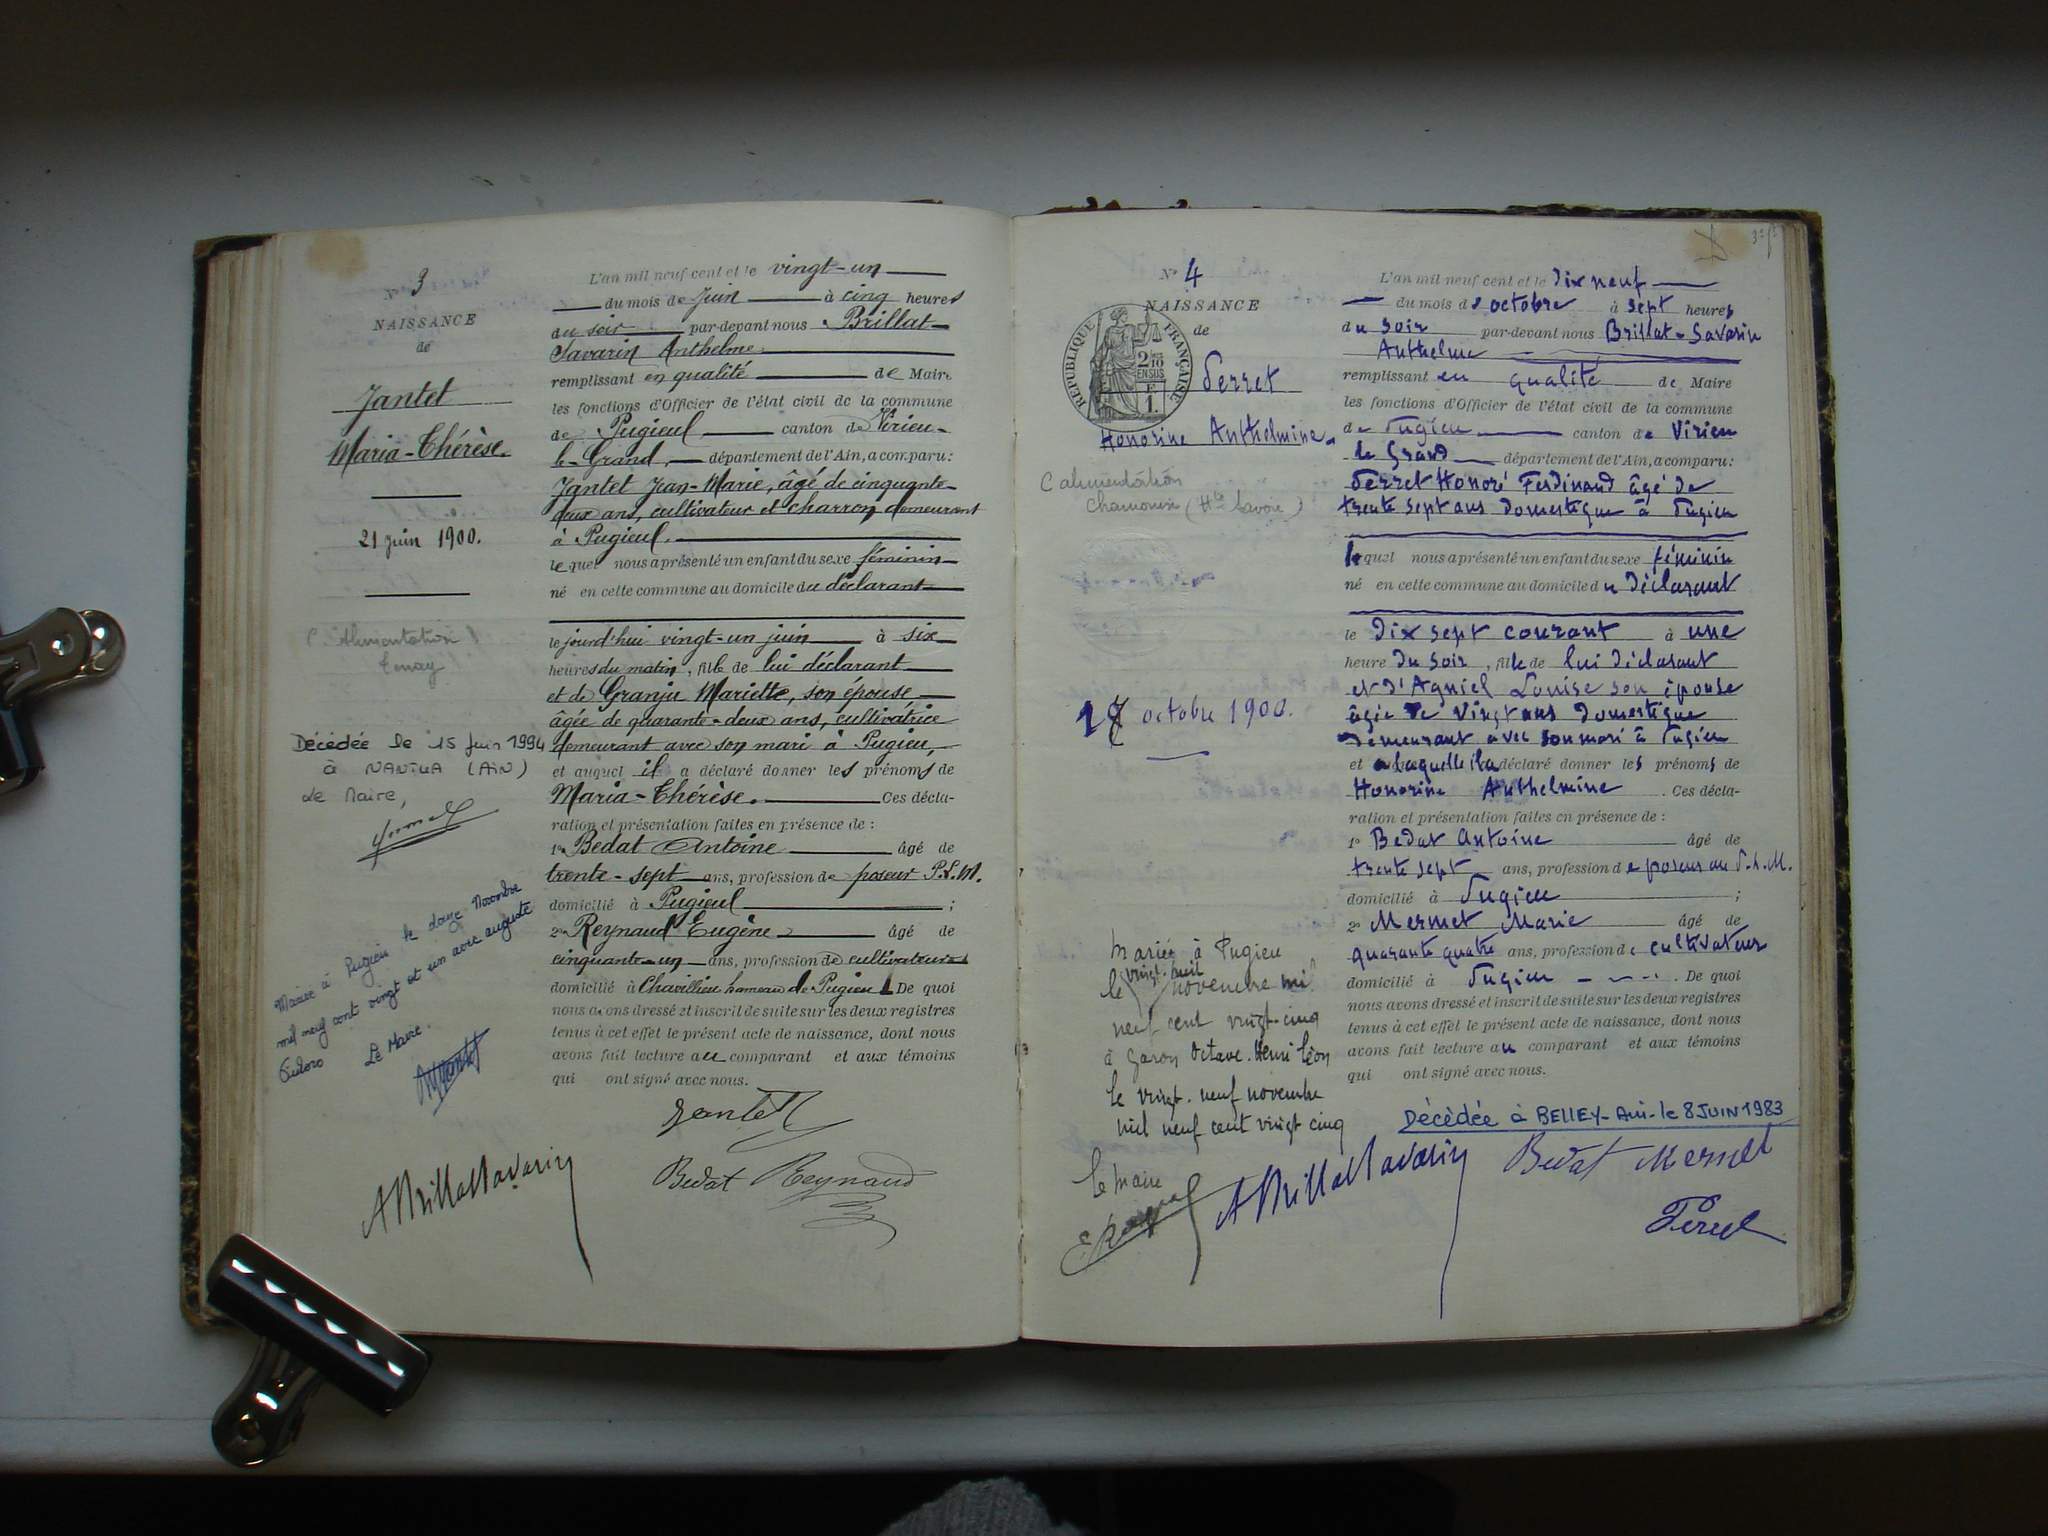 N° 3
NAISSANCE
de
Jantet
Maria-Thérèse.
21 juin 1900.
C. Alimentation
Tenay
Décédée le 15 Juin 1994
à NANTUA (AiN)
Le Maire,
Mariée à Pugieu le douze Novembre
mil neuf cent vingt et un avec auguste
Le Maire.
L'an mil neuf cent et le vingt-un
du mois de Juin à cinq heures
du soir par-devant nous Brillat-
Savarin Anthelme
remplissant en qualité de Maire
les fonctions d'Officier de l'état civil de la commune
de Pugieu canton de Virieu-
le-Grand, département de l'Ain, a comparu:
Jantet Jean-Marie, âgé de cinquante-
deux ans, cultivateur et charron demeurant
à Pugieu.
lequel nous a présenté un enfant du sexe féminin
né en cette commune au domicile du déclarant
le jourd'hui vingt-un juin à six
heures du matin, fille de lui déclarant
et de Granju Mariette, son épouse
âgée de quarante-deux ans, cultivatrice
demeurant avec son mari à Pugieu,
et auquel il a déclaré donner les prénoms de
Maria-Thérèse. Ces décla-
ration et présentation faites en présence de :
1° Bedat Antoine âgé de
trente-sept ans, profession de poseur P.L.M.
domicilié à Pugieu ;
2° Reynaud Eugène âgé de
cinquante-un ans, profession de cultivateur
domicilié à Chavillieu hameau de Pugieu. De quoi
nous avons dressé et inscrit de suite sur les deux registres
tenus à cet effet le présent acte de naissance, dont nous
avons fait lecture au comparant et aux témoins
qui ont signé avec nous.
Jantet
ABrillatSavarin Bedat Reynaud
N° 4
NAISSANCE
de
RÉPUBLIQUE FRANÇAISE
2/10 EN SUS
1.
Perret
Honorine Anthelmine.
C alimentation
Chamonix (Hte Savoie)
17 octobre 1900.
Mariée à Pugieu
le vingt-huit novembre mil
neuf cent vingt-cinq
à Garon Octave-Henri Léon
le vingt-neuf novembre
mil neuf cent vingt cinq
le Maire
L'an mil neuf cent et le dix neuf
du mois d'octobre à sept heures
du soir par-devant nous Brillat-Savarin
Anthelme
remplissant en qualité de Maire
les fonctions d'Officier de l'état civil de la commune
de Pugieu canton de Virieu
le Grand département de l'Ain, a comparu:
Perret Honoré Ferdinand âgé de
trente sept ans domestique à Pugieu
lequel nous a présenté un enfant du sexe féminin
né en cette commune au domicile du déclarant
le dix sept courant à une
heure du soir, fille de lui déclarant
et d'Agniel Louise son épouse
âgée de vingt ans domestique
demeurant avec son mari à Pugieu
et a laquelle il a déclaré donner les prénoms de
Honorine Anthelmine. Ces décla-
ration et présentation faites en présence de :
1° Bedat Antoine âgé de
trente sept ans, profession de poseur au P.L.M.
domicilié à Pugieu ;
2° Mermet Marie âgé de
quarante quatre ans, profession de cultivateur
domicilié à Pugieu. De quoi
nous avons dressé et inscrit de suite sur les deux registres
tenus à cet effet le présent acte de naissance, dont nous
avons fait lecture au comparant et aux témoins
qui ont signé avec nous.
Décédée à BELLEY-Ain-le 8 JUIN 1983
ABrillatSavarin Bedat Mermet
Perret